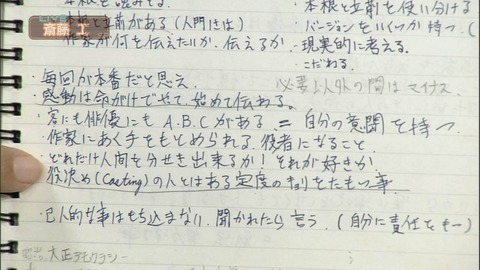 LIVE
斎藤 工
本根と立前を使い分ける
・本根と立前がある(人間きは)
・バージョンをいくつか持つ.(
作家が何を伝えたいか、伝えるか.
・現実的に考える.
・こだわる.
・毎回が本番だと思え.
必要以外の間はマイナス
・感動は命がけでやて、始めて伝わる。
・客にも俳優にも A.B.C がある = 自分の意聞を持つ.
・作家にあく手をもとめられる役者になること.
・どれだけ人間を分せき出来るか! それが好きか.
・役決め(Casting)の人とはある定度のきょりをたもつ事.
・己人的な事はもち込まない. 聞かれたら言う. (自分に責任をもつ)
大正デモクラシー